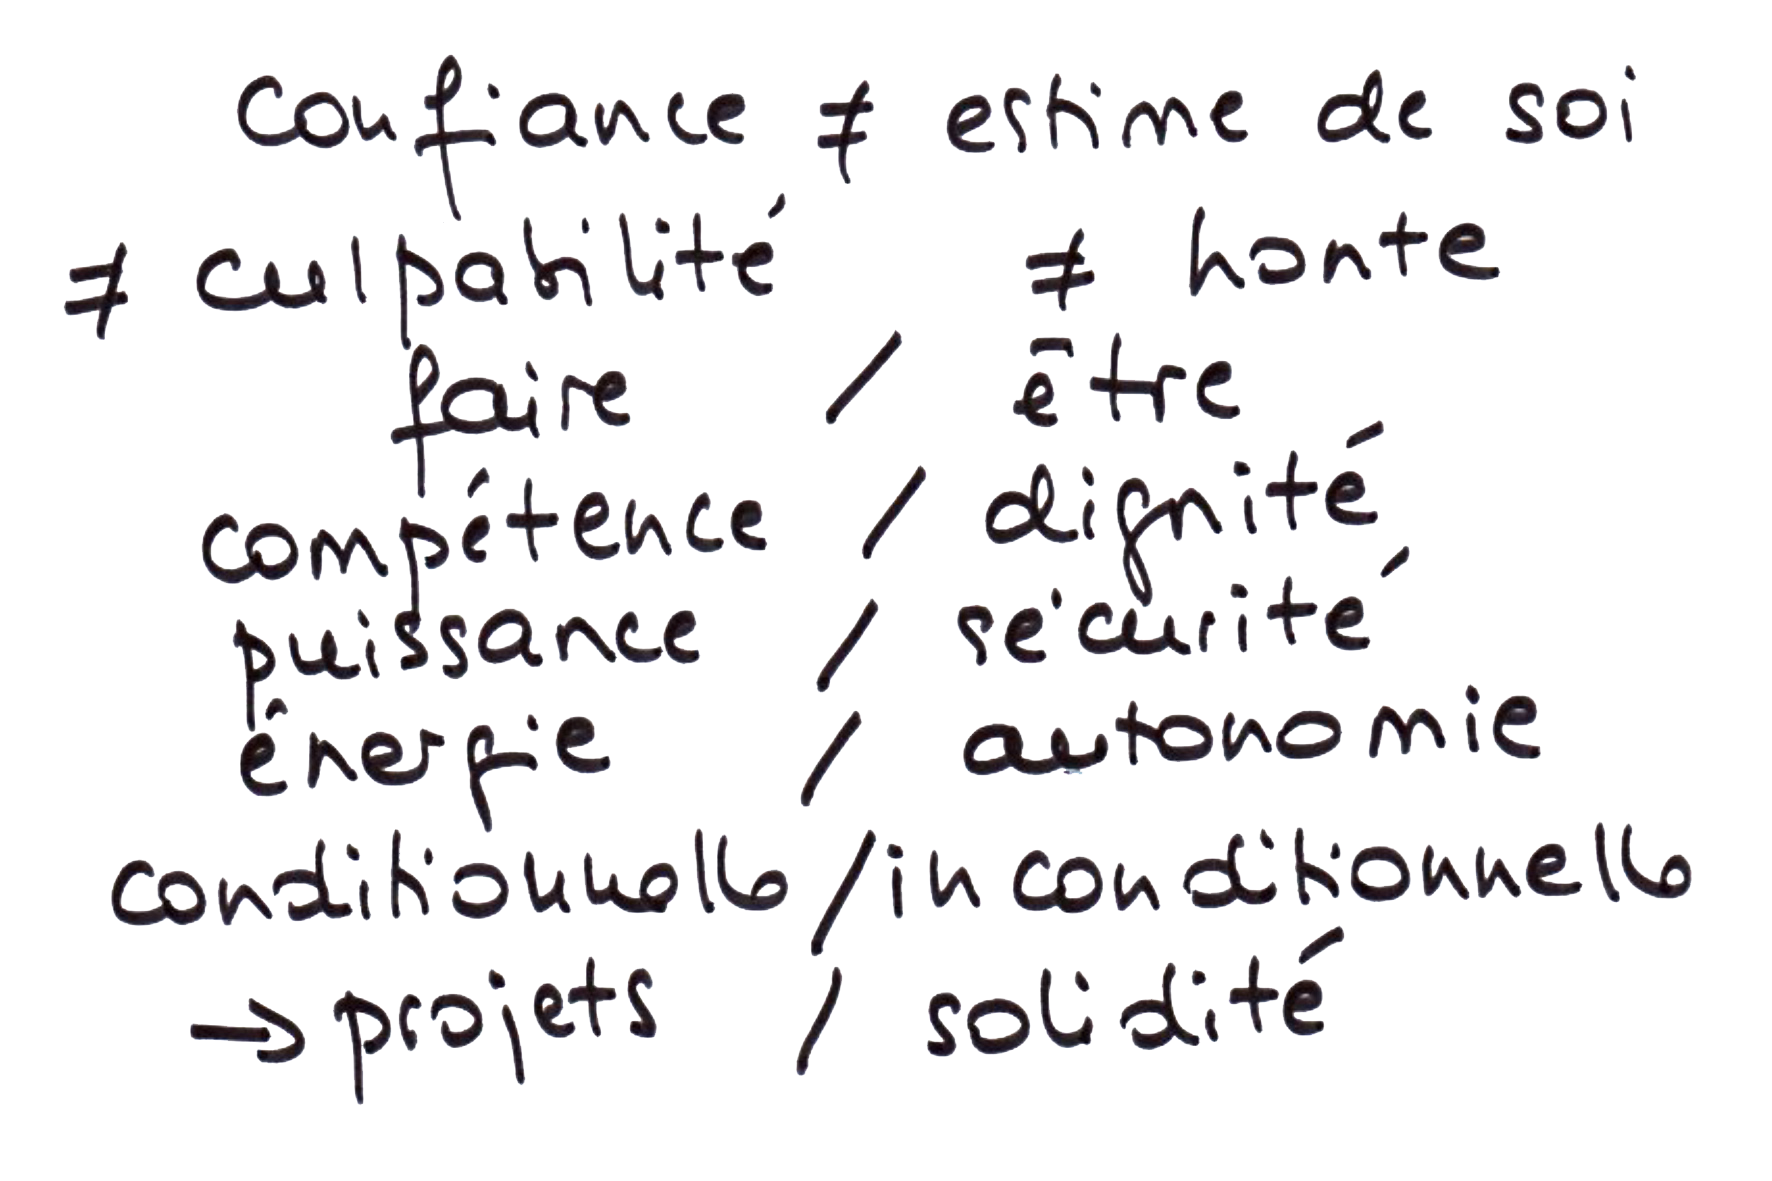 confiance ≠ estime de soi
≠ culpabilité ≠ honte
faire / être
compétence / dignité
puissance / sécurité
énergie / autonomie
conditionnelle / inconditionnelle
→ projets / solidité